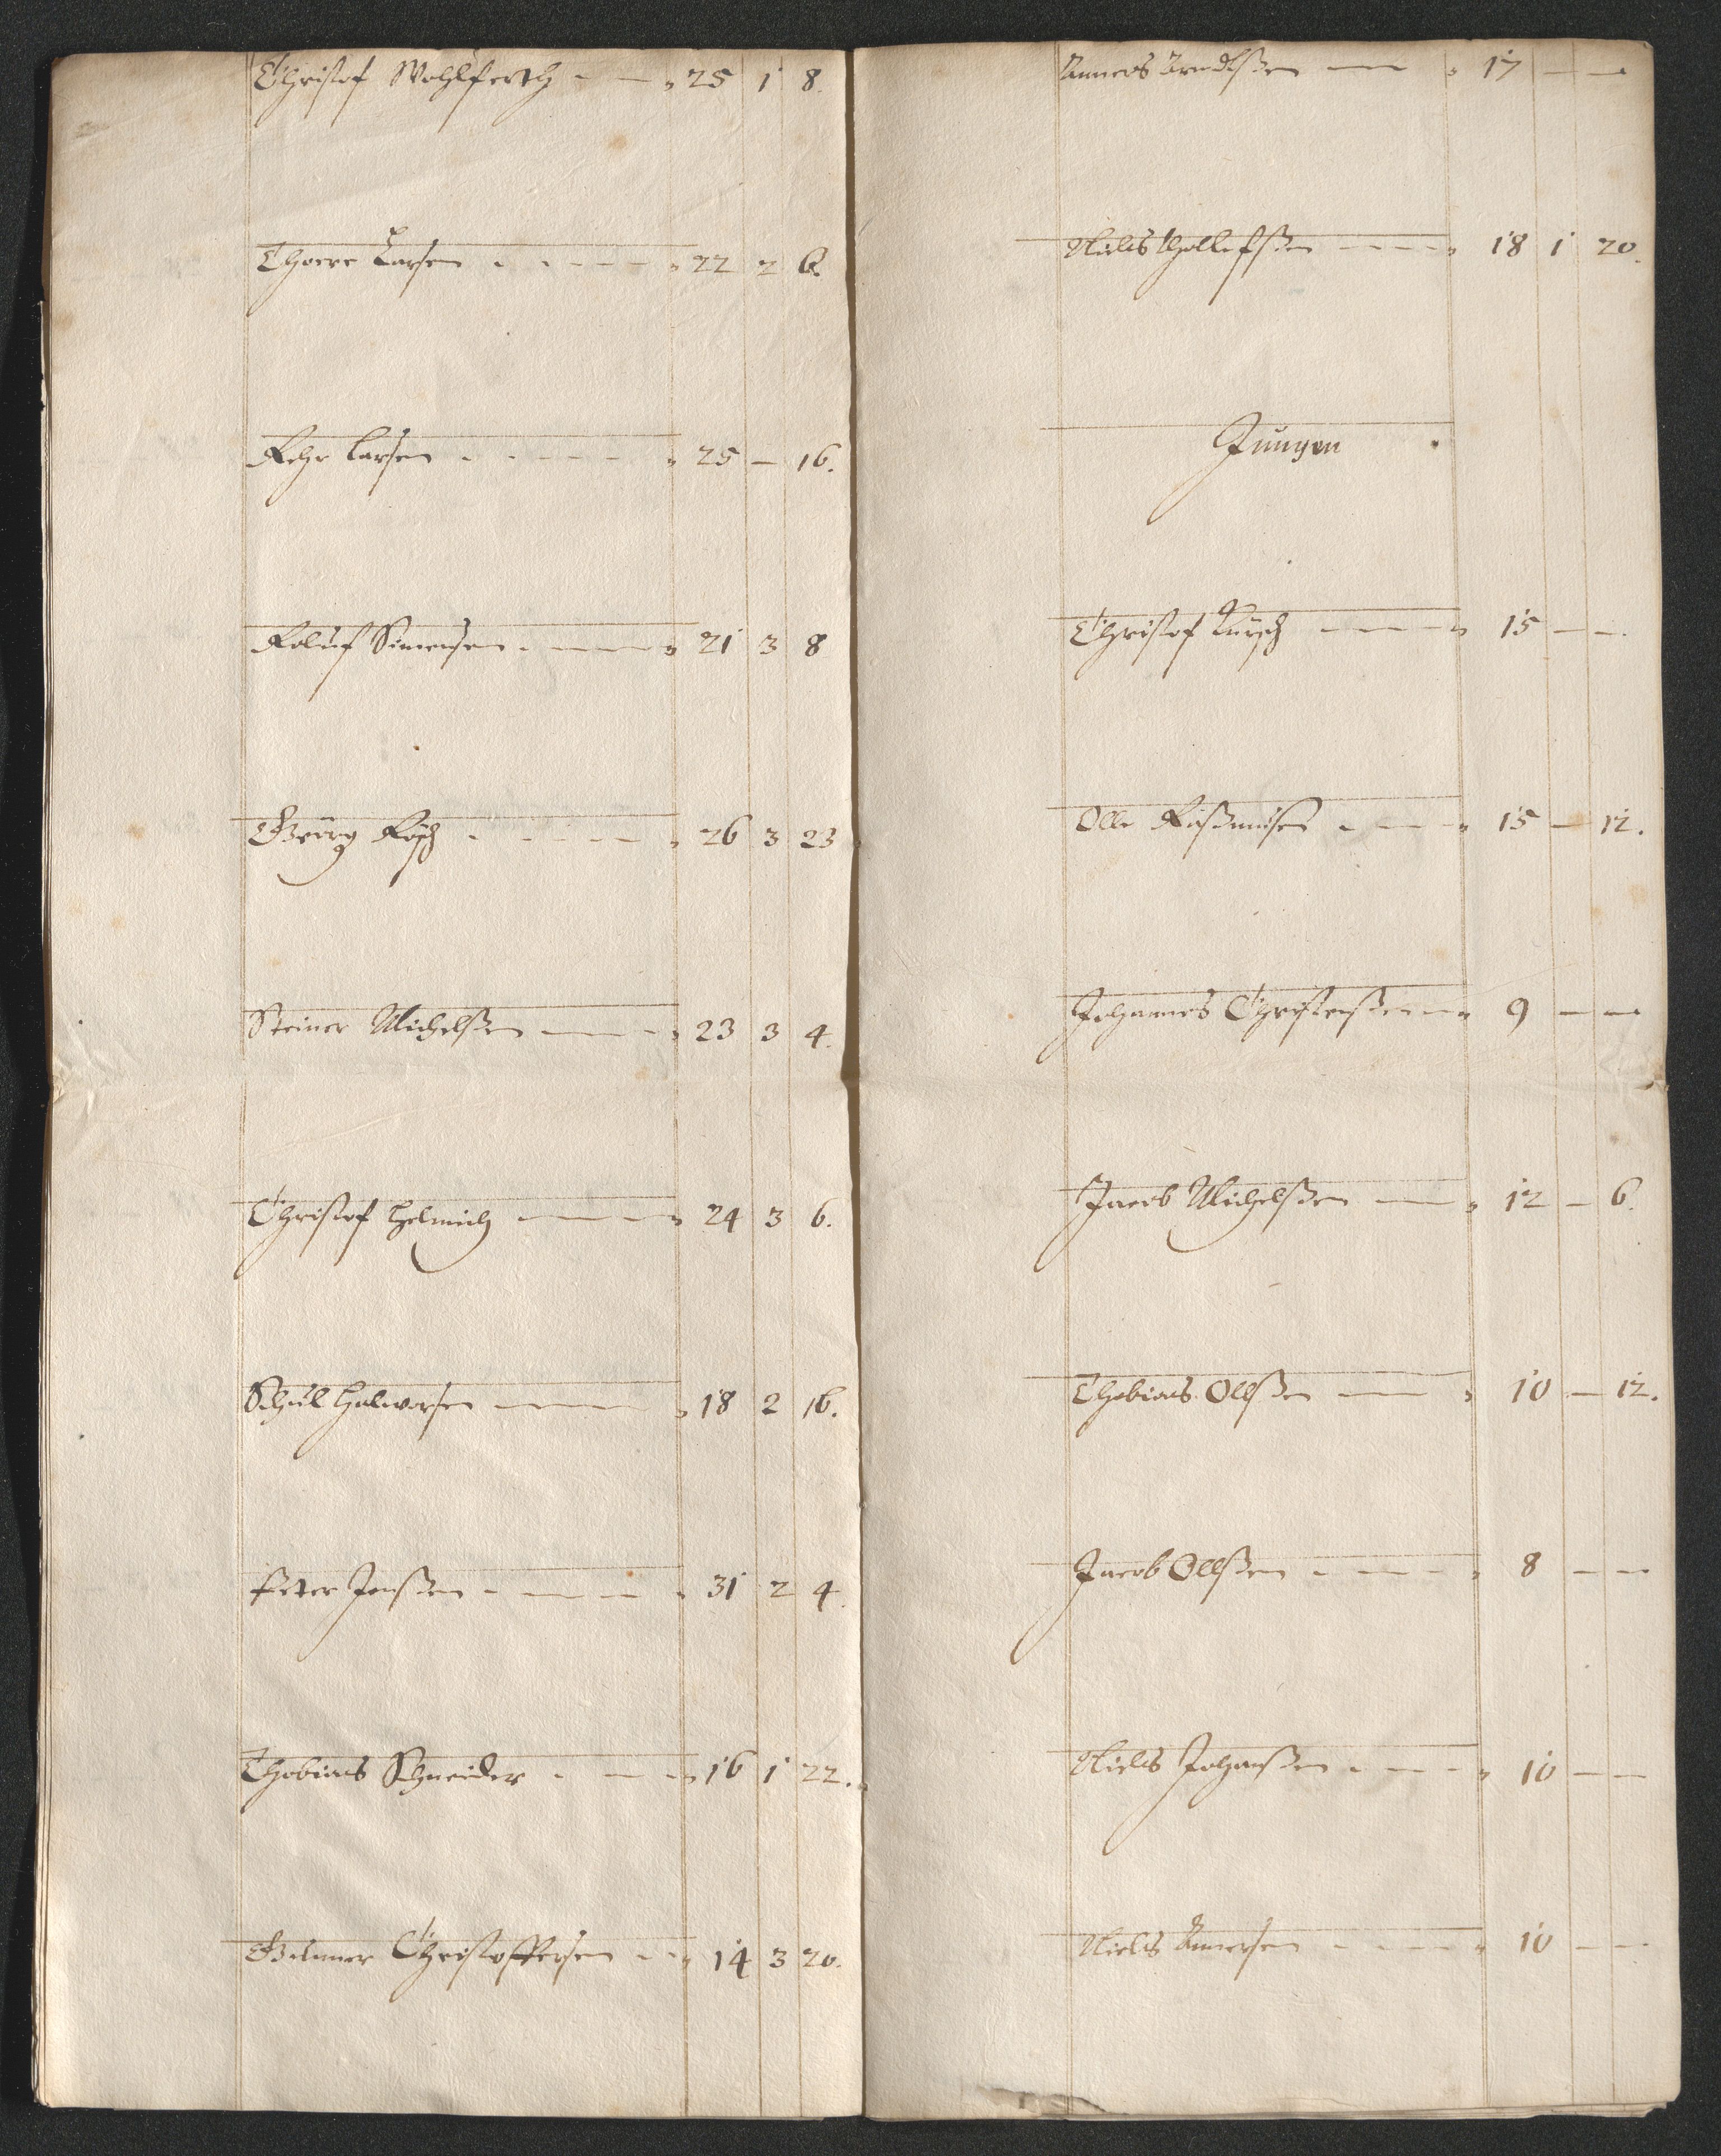 Christof Wohlferth - — " 25 1 8.
Thoere Larsen - - - - - " 22 2 6.
Pehr Larsen - - - - - " 25 — 16.
Roluf Simensen - - - - " 21 3 8
Georg Posch - - - - - " 26 3 23
Steiner Michelßen — — - " 23 3 4.
Christof Helmich — — — " 24 3 6.
Schul Halworsen — — — " 18 2 16.
Peter Jenßen - — — — " 31 2 4.
Thobias Schneider - — — " 16 1 22.
Gunner Christoffersen - - " 14 3 20.
Anners Arndtßen — — " 17 — —
Niels Thollefsßen - - - - " 18 1 20.
Jungen
Christof Kirsch - - - - " 15 — —.
Olle Raßmußen - - - - " 15 — 12.
Johannes Christenßen - " 9 — —
Jacob Michelßen — — " 12 — 6.
Thobias Ollßen — — " 10 — 12.
Jacob Ollßen - - - - " 8 — —
Niels Johanßen - - - - " 10 — —
Niels Annersen - - - - " 10 — —